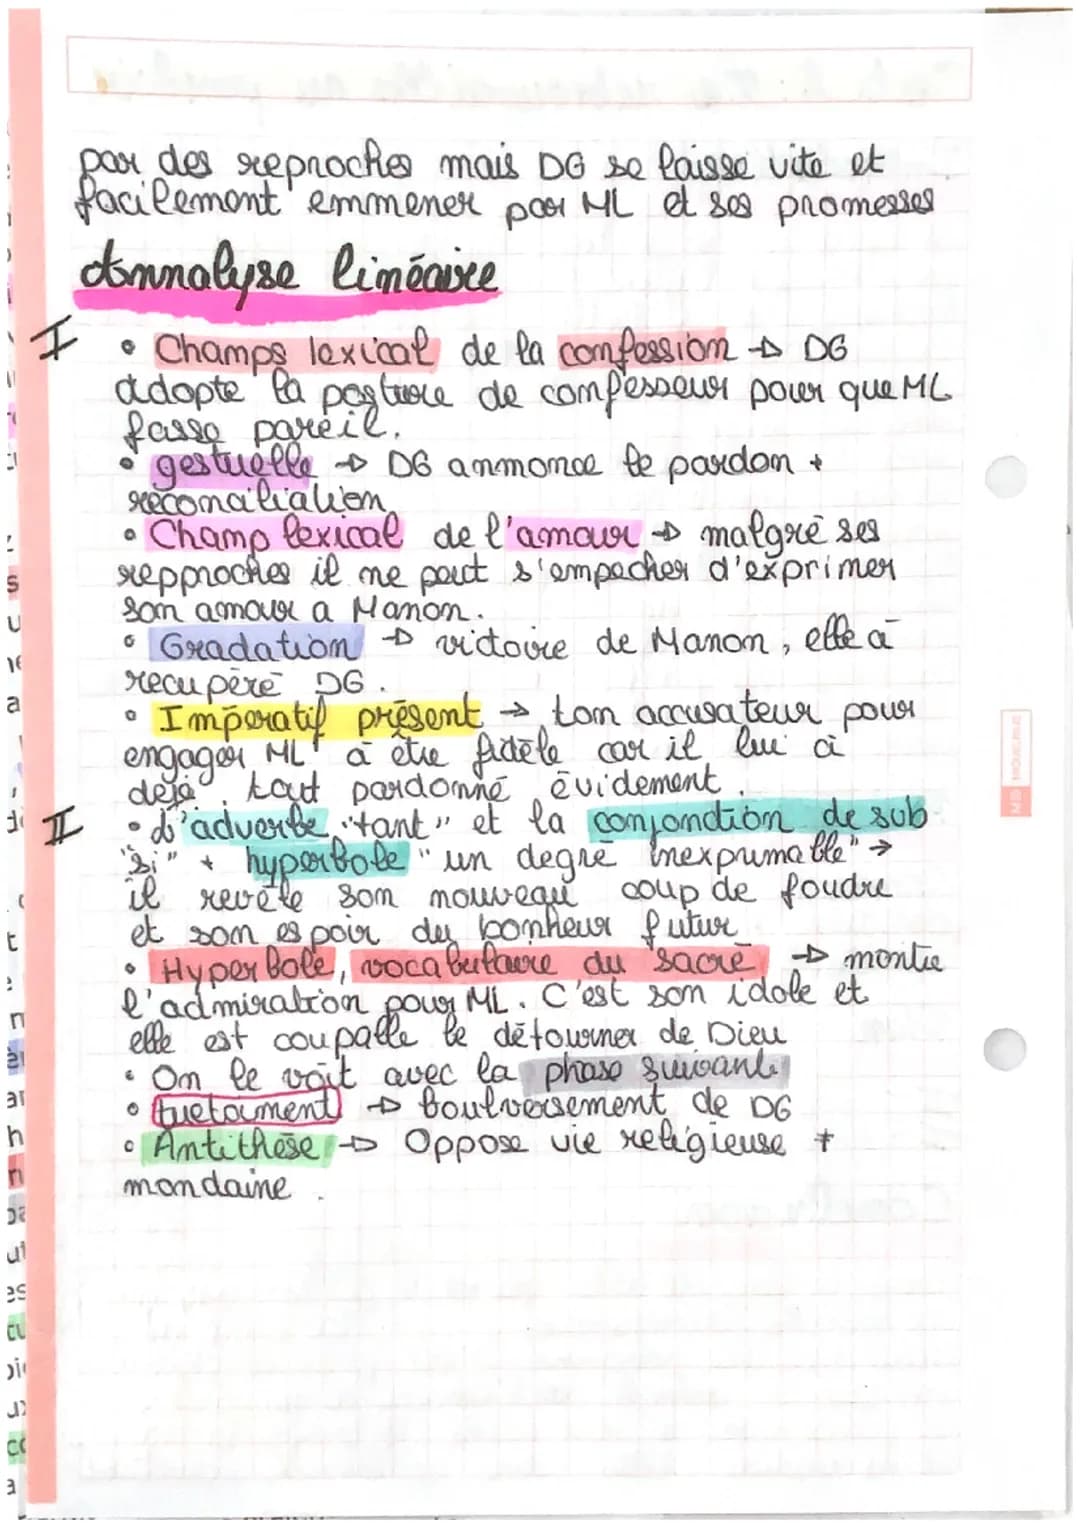 par des reproches mais DG se laisse vite et
facilement emmener par ML et ses promesses
Annalyse linéaire
I
• Champs lexical de la confession → DG
adopte la posture de confesseur pour que ML
fasse pareil.
• gestuelle → DG annonce le pardon +
reconciliation
• Champ lexical de l'amour → malgré ses
repproches il ne peut s'empacher d'exprimer
son amour a Manon.
• Gradation → victoire de Manon, elle à
recupéré DG.
• Impératif présent → ton accusateur pour
engager ML à être fidèle car il lui à
dejà tout pardonné évidement.
II
• L'adverbe "tant" et la conjonction de sub
"si" + hyperbole "un degré inexprimable" →
il revèle son nouveau coup de foudre
et son espoir du bonheur futur
• Hyperbole, vocabulaire du sacré → montre
l'admiration pour ML. C'est son idole et
elle est coupable le détourner de Dieu
• On le voit avec la phase suivante
• tuetoiment → boulversement de DG
• Antithèse → Oppose vie religieuse +
mondaine.